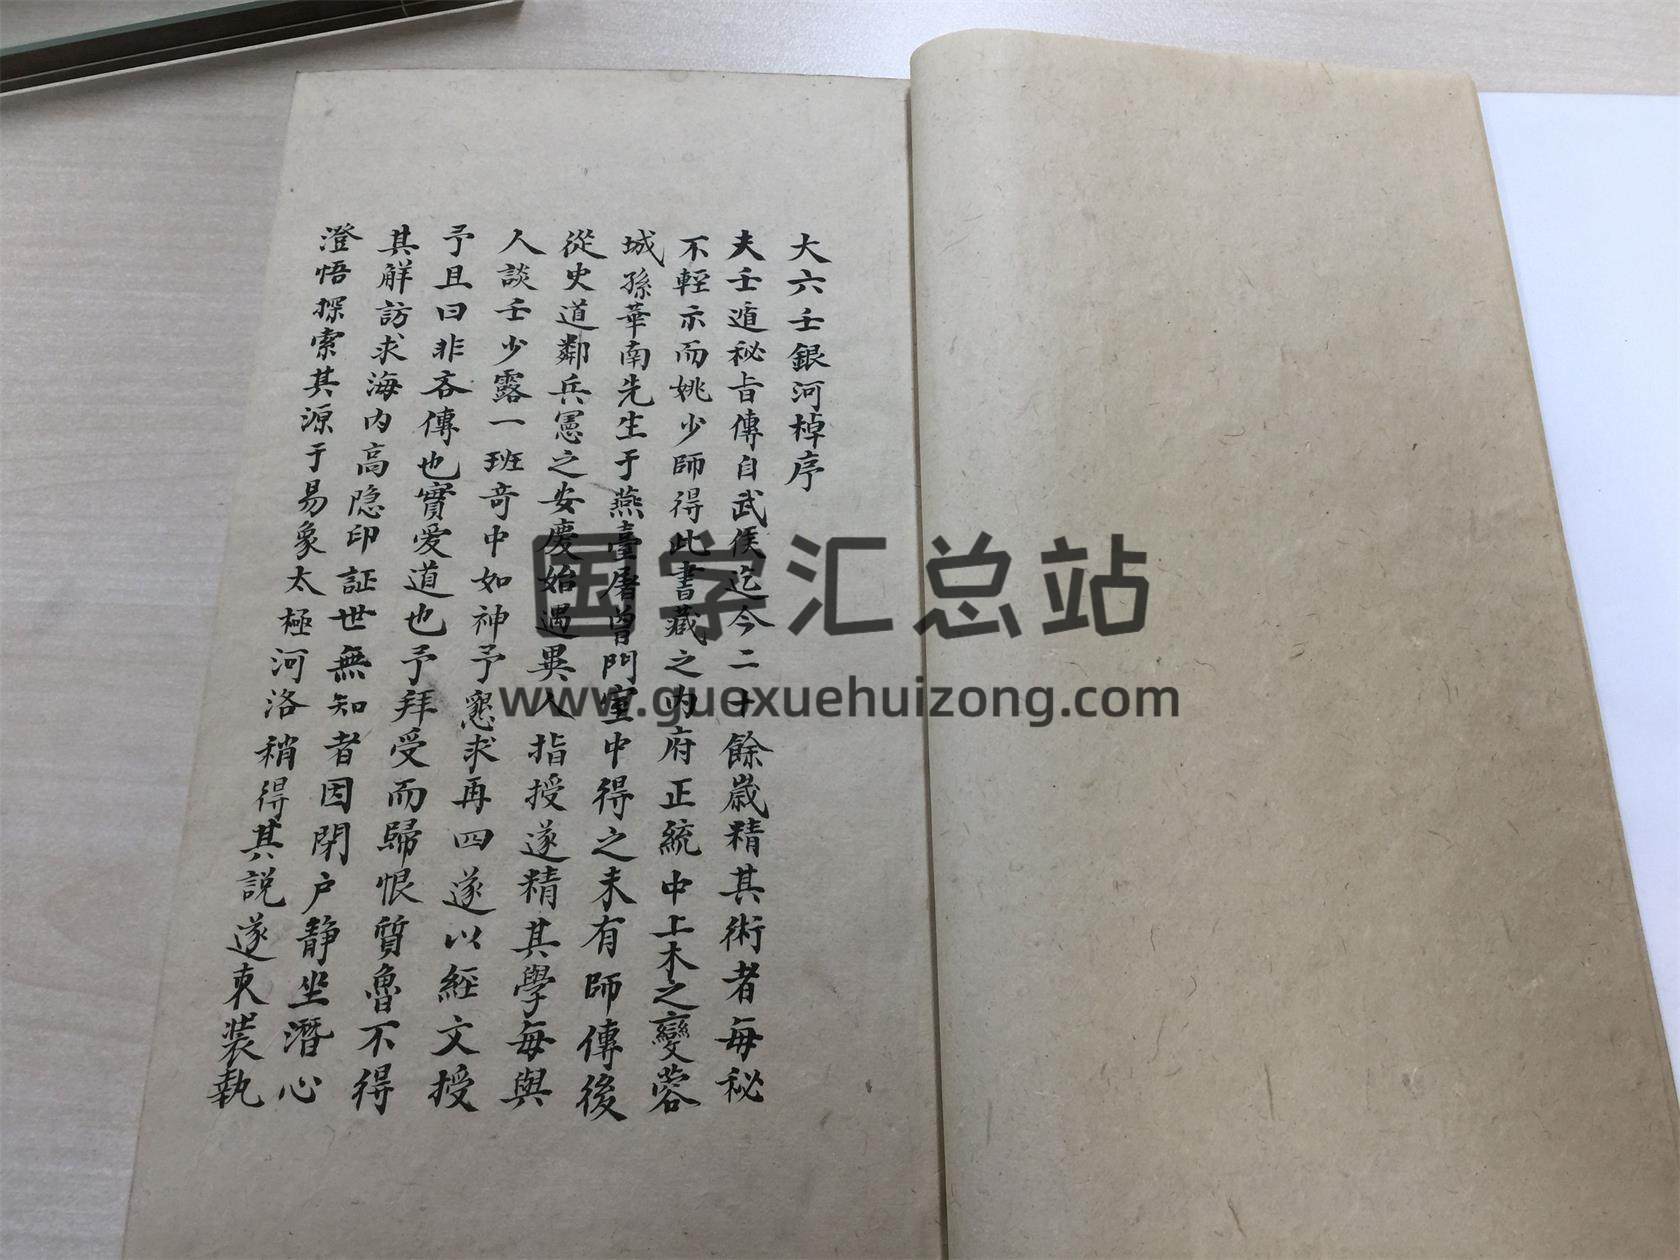 大六壬銀河棹序
夫壬遁秘旨傳自武侯迄今二十餘歲精其術者每秘
不輕示而姚少師得此書藏之内府正統中上木之變蓉
城孫華南先生于燕臺屠曾門室中得之未有師傳後
從史道鄰兵憲之安慶始遇異人指授遂精其學每與
人談壬少露一班竒中如神予懇求再四遂以經文授
予且曰非吝傳也實爱道也予拜受而歸恨質魯不得
其解訪求海内高隐印証世無知者因閉户靜坐潛心
澄悟探索其源于易象太極河洛稍得其説遂束装執
国学汇总站
www.guoxuehuizong.com